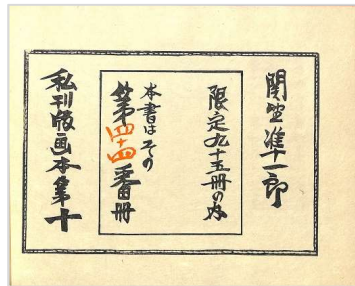 関野凖一郎
限定九十五冊の内
本書はその
第四十四番冊
私刊版画本第十